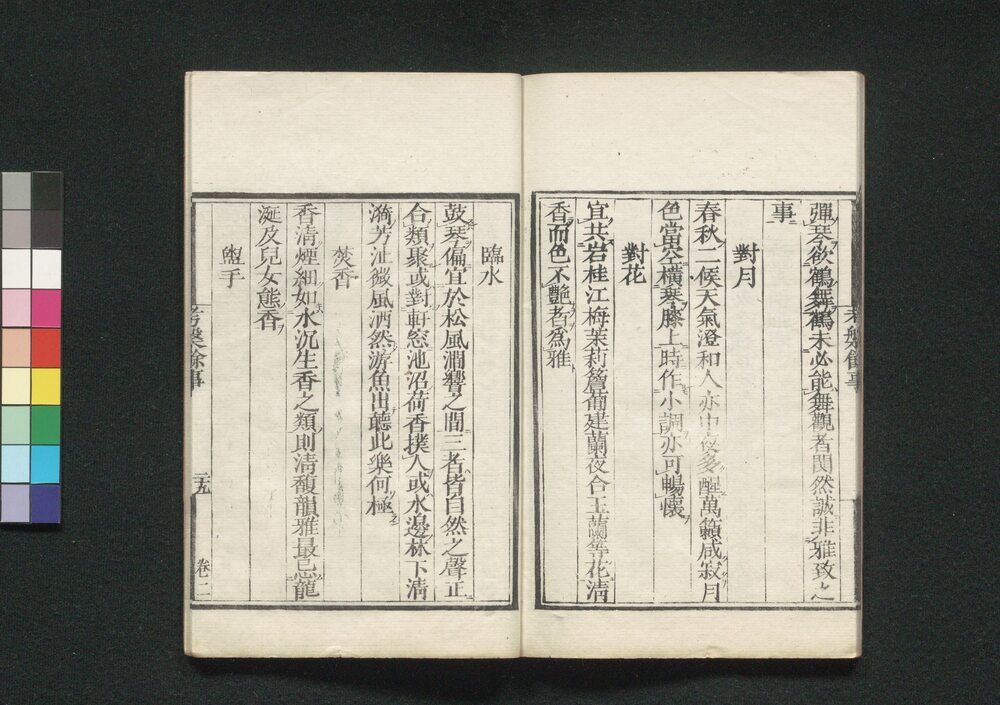 彈琴欲鶴舞鶴未必能舞觀者閧然誠非雅致之
事
對月
春秋二候天氣澄和人亦中夜多醒萬籟咸寂月
色當空橫琴膝上時作小調亦可暢懷
對花
宜共岩桂江梅茉莉簷蔔建蘭夜合玉蘭等花淸
香而色不艷者爲雅
考槃餘事
臨水
鼓琴偏宜於松風澗響之間三者皆自然之聲正
合類聚或對軒窓池沼荷香撲人或水邊林下淸
漪芳沚微風洒然游魚出聽此樂何極
焚香
香清煙細如水沉生香之類則淸馥韻雅最忌龍
涎及兒女態香
盥手
考槃餘事
二五
卷二